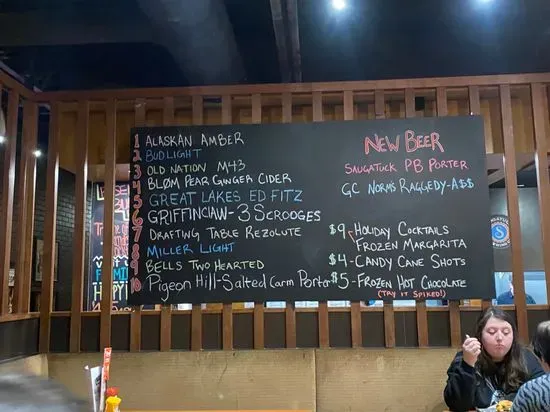 1 ALASKAN AMBER
2 BUD LIGHT
3 OLD NATION M43
4 BLØM PEAR GINGER CIDER
5 GREAT LAKES ED FITZ
6 GRIFFINCLAW-3 SCROOGES
7 DRAFTING TABLE REZOLUTE
8 MILLER LIGHT
9 BELLS TWO HEARTED
10 PIGEON HILL-SALTED CARM PORTER
NEW BEER
SAUGATUCK PB PORTER
GC NORMS RAGGEDY-A$$
$9 HOLIDAY COCKTAILS
FROZEN MARGARITA
$4-CANDY CANE SHOTS
$5-FROZEN HOT CHOCOLATE
(TRY IT SPIKED!)